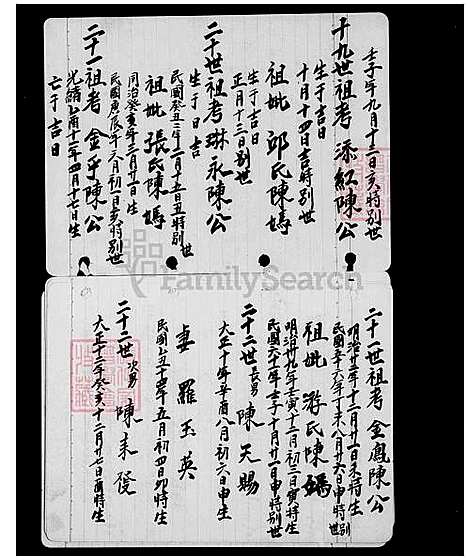 壬子年九月十二日亥時別世
十九世祖考添紅陳公
生于吉日
十月十四日吉時別世
祖妣邱氏陳媽
生于吉日
正月十三日別世
二十世祖考琳永陳公
生于吉日
民國癸丑二年二月十五日丑時別世
祖妣張氏陳媽
同治癸亥年三月廿日生
民國庚辰年六月初一日亥時別世
二十一祖考金乎陳公
光緒乙酉十一年四月十七日生
亡于吉日
FamilySearch
二十一世祖考金鳳陳公
明治廿二年十二月廿一日未時生
民國辛六年丁未八月廿六日申時別世
祖妣游氏陳媽
明治卅九年壬寅十二月初三日寅時生
民國六十一年壬子十月廿一日申時別世
二十二世長男陳天賜
大正十年辛酉八月初六日申生
妻羅玉英
民國乙丑十四年五月初四日卯時生
二十二世次男陳來發
大正十二年癸亥十二月廿七日酉時生